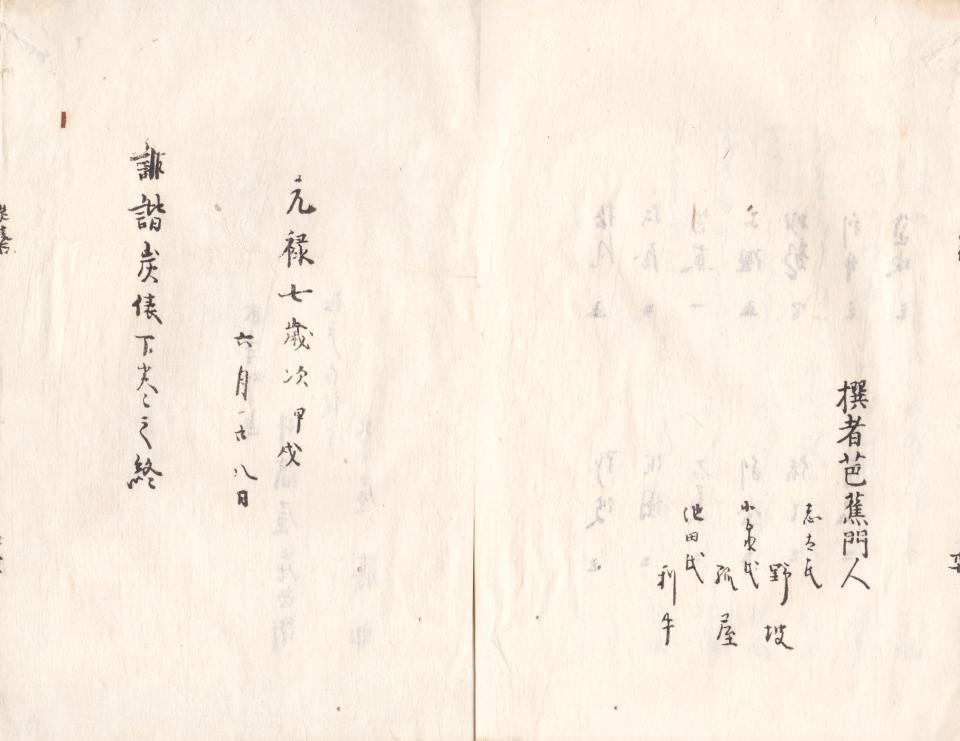 撰者芭蕉門人
志太氏
野坡
小泉氏
孤屋
池田氏
利牛
元禄七歳次甲戌
六月廿八日
誹諧炭俵下巻之終